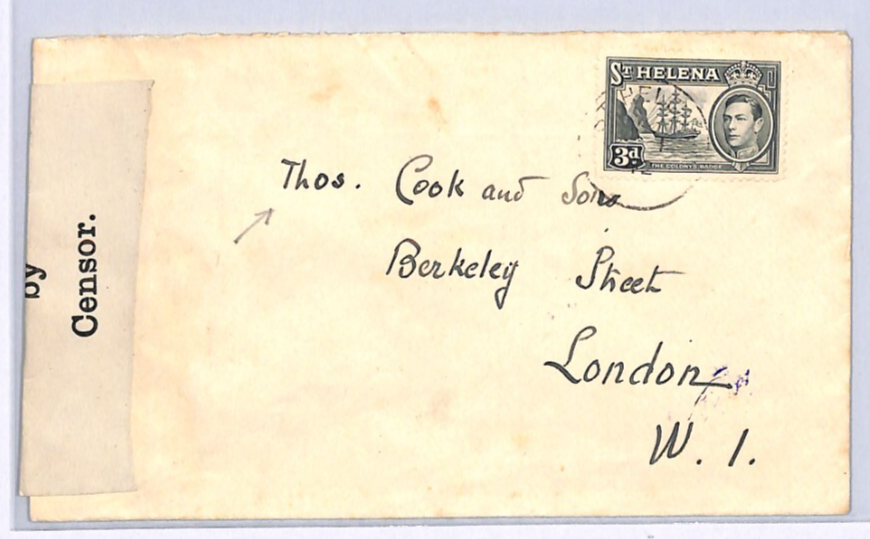 ST HELENA
3d
THE COLONY'S BADGE
Thos. Cook and Sons
Berkeley Street
London
W. 1.
by
Censor.